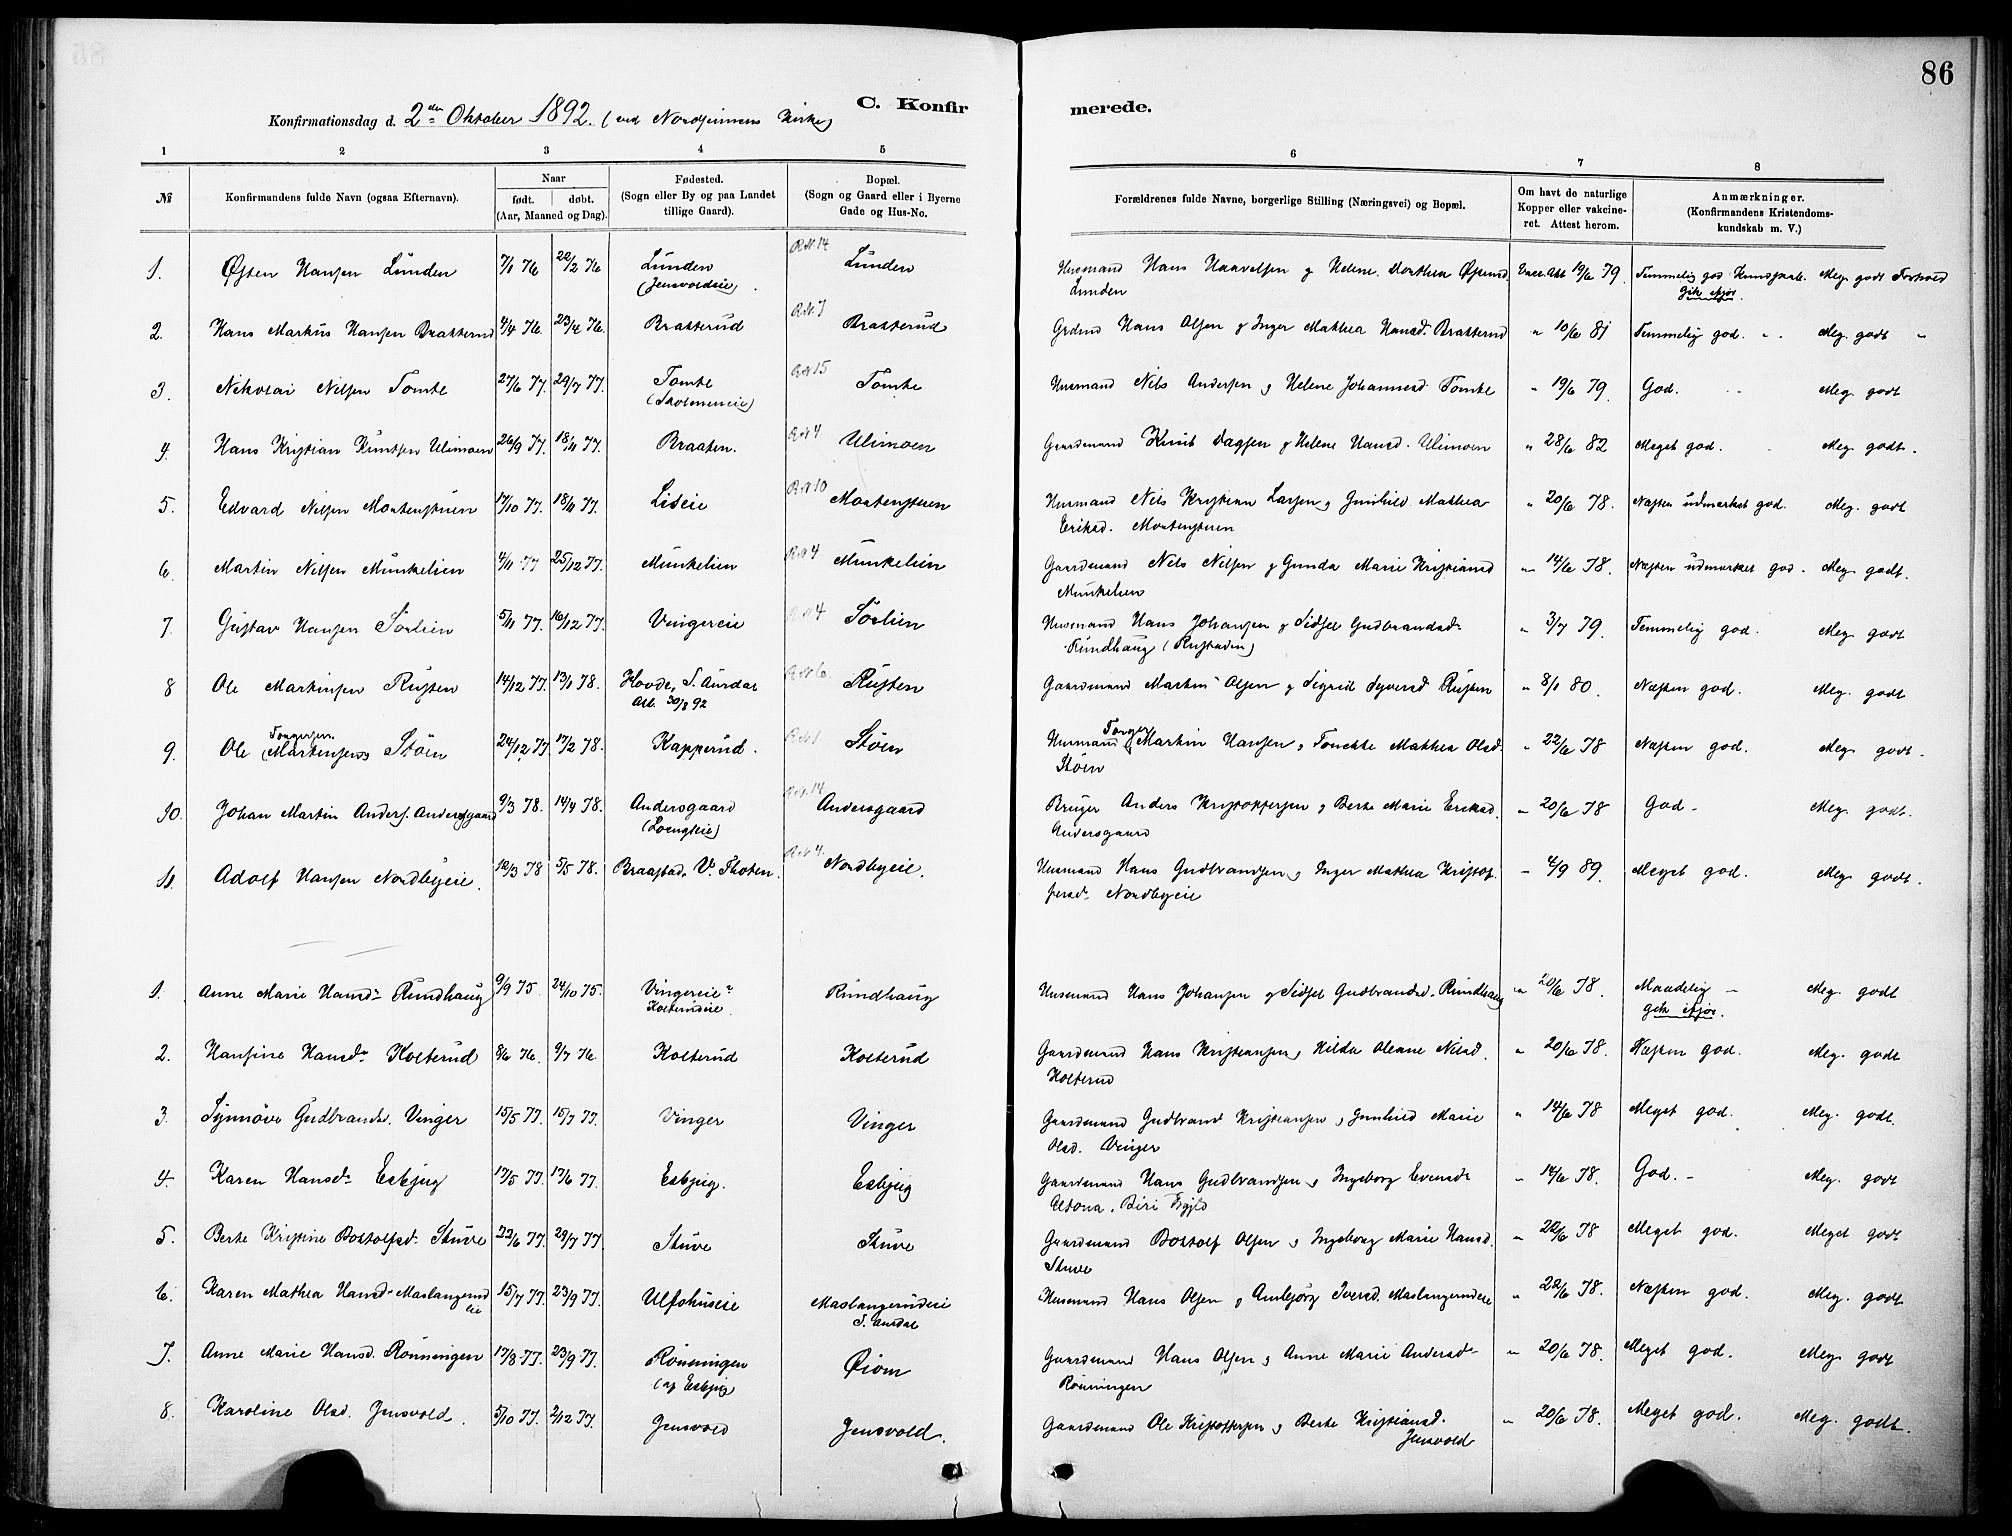 86
C. Konfirmerede.
Konfirmationsdag d. 2den Oktober 1892. (ved Nordsinnens Kirke)
1 2 3 4 5 6 7 8
№ Konfirmandens fulde Navn (ogsaa Efternavn). Naar født. døbt. (Aar, Maaned og Dag). Fødested. (Sogn eller By og paa Landet tillige Gaard). Bopæl. (Sogn og Gaard eller i Byerne Gade og Hus-No. Forældrenes fulde Navne, borgerlige Stilling (Næringsvei) og Bopæl. Om havt de naturlige Kopper eller vakcineret. Attest herom. Anmærkninger. (Konfirmandens Kristendomskundskab m. V.)
1. Østen Hansen Lunden 7/1 76 22/2 76 Lunden (Jensvoldeie). R№ 14 Lunden Husmand Hans Haavelsen & Helene Dorthea Østensd. Lunden Vacc. Att 19/6 79. Temmelig god Kundskab. Meg. godt Forhold
gik ifjor.
2. Hans Markus Hansen Brakterud 4/4 76. 23/4 76. Brakterud R№ 7 Brakterud Grdmd Hans Olsen & Inger Mathea Hansd. Brakterud " 10/6 81 Temmelig god. " Meg. godt "
3. Nikolai Nilsen Tomte 27/6 77. 29/7 77. Tomte R№ 15 Tomte Husmand Nils Andersen & Helene Johannesd Tomte " 19/6 79. God. Meg. godt
4. Hans Kristian Knutsen Ulimoen 26/9 77. 18/11 77. Braaten. R№ 4 Ulimoen Gaardmand Knut Dagsen & Helene Hansd. Ulimoen " 28/6 82 Meget god. Meg. godt.
5. Edvard Nilsen Mortenstuen 17/10 77. 18/11 77. Liseie R№ 10 Mortenstuen Husmand Nils Kristian Larsen & Gunhild Mathea Eriksd. Mortenstuen " 20/6 78. Næsten udmærket god. Meg. godt
6. Martin Nilsen Munkelien 4/11 77 25/12 77. Munkelien R№ 4 Munkelien Gaardmand Nils Nilsen & Gunda Marie Kristiansd Munkelien " 14/6 78. Næsten udmærket god. Meg. godt.
7. Gustav Hansen Sørlien 5/11 77. 16/12 77. Vingereie R№ 4 Sørlien Husmand Hans Johansen & Sidsel Gudbrandsd. Rundhaug " 3/7 79. Temmelig god. Meg. godt
8 Ole Martinsen Rusten 14/12 77. 13/1 78. Hovde, S. Aurdal Att. 30/8 92 R№ 6 Rusten Gaardmand Martin Olsen & Sigrid Syversd Rusten " 8/1 80. Næsten god. Meg. godt
9. Ole (Martinsens) Støen 24/12 77 17/2 78. Kapperud. R№ 1 Støen Husmand Martin Hansen & Mathea Olsd. Støen " 22/6 78 Næsten god. Meg. godt.
10. Johan Martin Anders. Andersgaard 9/3 78. 14/4 78. Andersgaard R№ 14 Andersgaard Bruger Anders Kristoffersen & Berte Marie Eriksd. Andersgaard " 20/6 78 God - Meg. godt.
11. Adolf Hansen Nordbyeie. 12/3 78 5/5 78. Braastad, V. Thoten. R№ 4. Nordbyeie. Husmand Hans Gudbrandsen & Inger Mathea Kristoffersd. Nordbyeie " 4/9 89. Meget god. Meg. godt.
1. Anne Marie Hansd. Rundhaug 9/9 75. 24/10 75. Vingereie Kolterudeie. Rundhaug Husmand Hans Johansen & Sidsel Gudbrandsd. Rundhaug " 20/6 78. Maadelig - Meg. godt
gik ifjor.
2. Hansine Hansd. Kolterud 8/6 76. 9/7 76. Kolterud Kolterud Gaardmand Hans Kristiansen & Hilda Oleane Nilsd. Kolterud " 20/6 78. Næsten god. Meg. godt
3. Synnøve Gudbrandsd. Vinger 15/5 77. 15/7 77. Vinger Vinger Gaardmand Gudbrand Kristiansen & Gunhild Marie Olsd. Vinger " 14/6 78 Meget god. Meg. godt.
4. Karen Hansd. Esbjug 17/5 77. 17/6 77. Esbjug. Esbjug Gaardmand Hans Gudbrandsen & Ingeborg Evensd. Altona, Biri " 14/6 78. God. - Meg. godt
5. Berte Kristine Bottolfsd. Stuve 22/6 77. 29/7 77. Stuve Stuve Gaardmand Bottolf Olsen & Ingeborg Marie Hansd. Stuve " 22/6 78 Meget god. Meget godt
6. Karen Mathea Hansd. Maslangerudeie 15/7 77. 23/9 77. Ulfshuseie Maslangerudeie S. Aurdal Husmand Hans Olsen & Ambjørg Iversd. Maslangerudeie " 22/6 78. Næsten god. Meg. godt
7. Anne Marie Hansd. Rønningen 17/8 77. 23/9 77. Rønningen (af Esbjug) Øiom Gaardmand Hans Olsen & Anne Marie Andersd. Rønningen " 20/6 78. Meget god. Meg. godt
8. Karoline Olsd. Jensvold. 5/10 77. 2/12 77. Jensvold Jensvold. Gaardmand Ole Kristoffersen & Berte Kristiansd. Jensvold " 20/6 78. Meget god. Meg. godt.